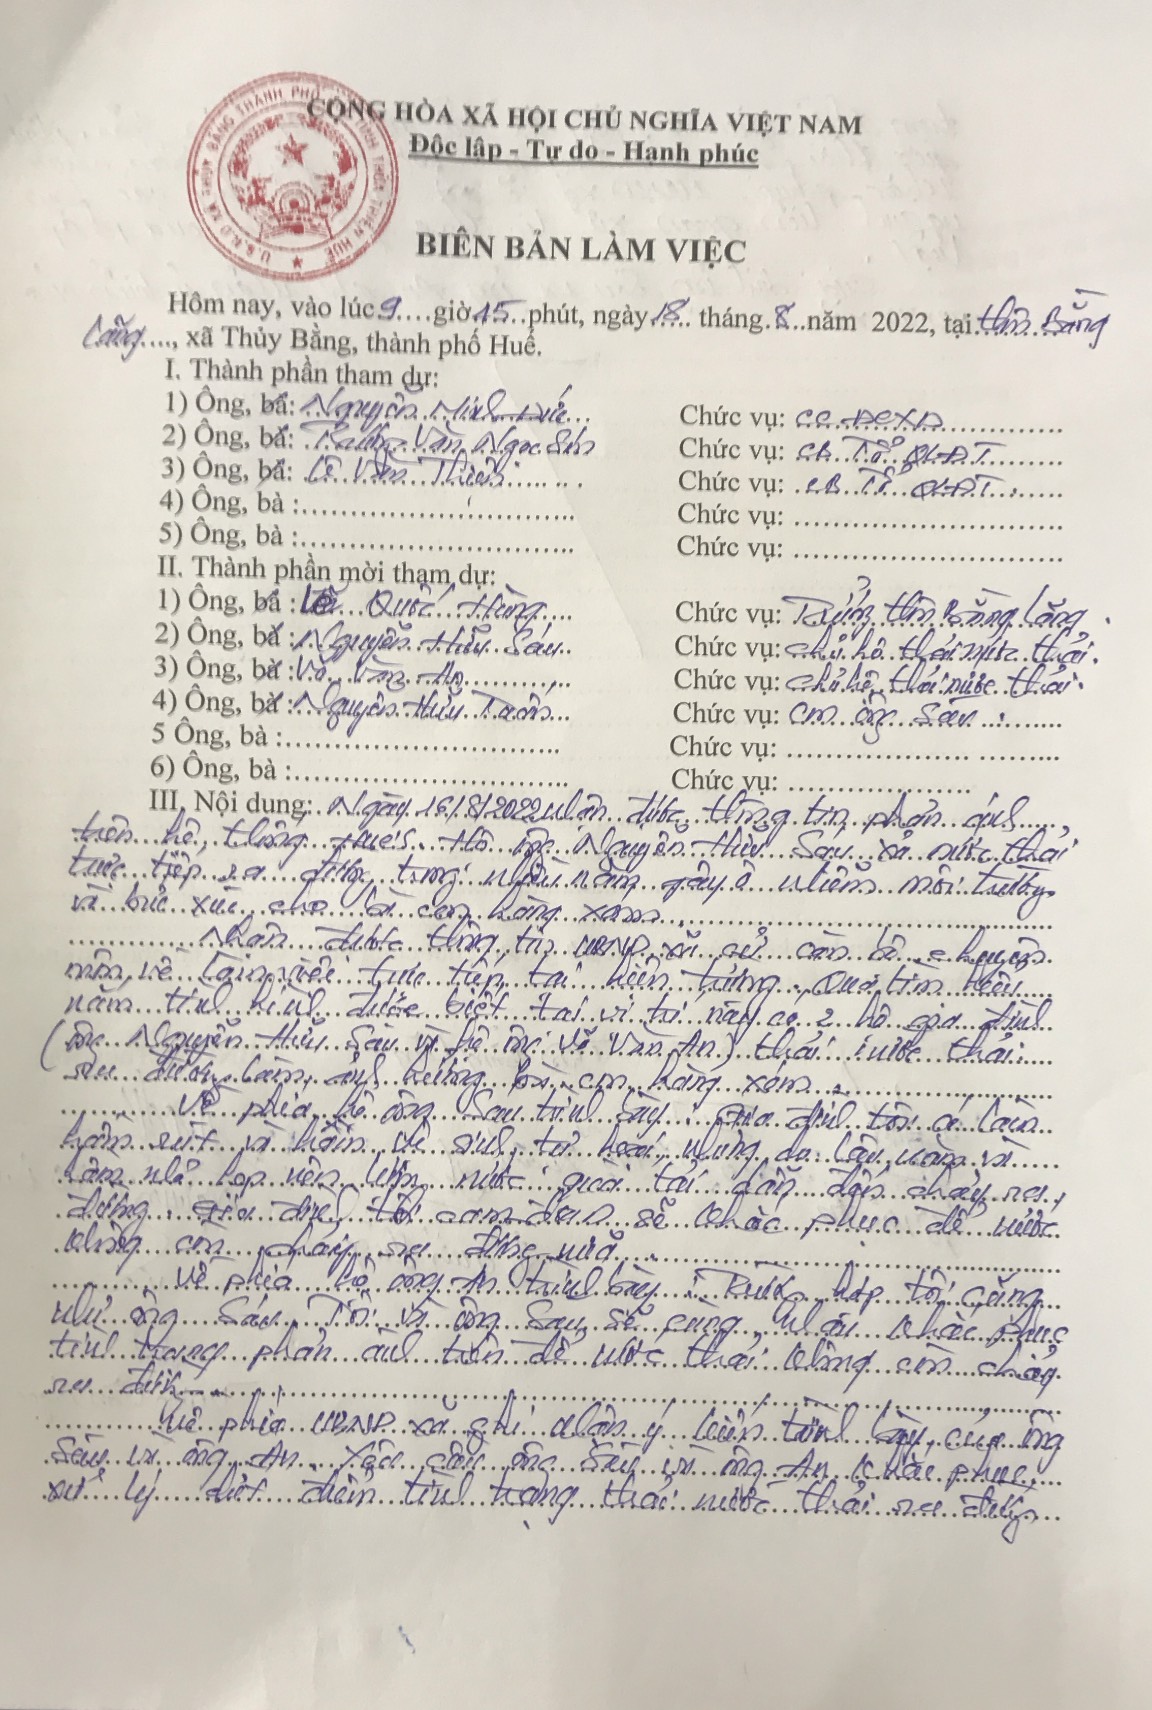 CỘNG HÒA XÃ HỘI CHỦ NGHĨA VIỆT NAM
Độc lập - Tự do - Hạnh phúc
U.B.N.D XÃ THUỶ BẰNG THÀNH PHỐ TỈNH THỪA THIÊN HUẾ
BIÊN BẢN LÀM VIỆC
Hôm nay, vào lúc 9 giờ 15 phút, ngày 18 tháng 8 năm 2022, tại thôn Bằng
Lãng, xã Thủy Bằng, thành phố Huế.
I. Thành phần tham dự:
1) Ông, bà: Nguyễn Minh Đức Chức vụ: CC ĐCXD
2) Ông, bà: Văn Ngọc Sơn Chức vụ: CB Tổ QLĐT
3) Ông, bà: Lê Văn Thiên Chức vụ: CB Tổ QLĐT
4) Ông, bà : Chức vụ:
5) Ông, bà : Chức vụ:
II. Thành phần mời tham dự:
1) Ông, bà : Quốc Hùng Chức vụ: Trưởng thôn Bằng Lãng
2) Ông, bà : Nguyễn Hữu Sáu Chức vụ: chủ hộ thải nước thải
3) Ông, bà : Võ Văn An Chức vụ: chủ hộ thải nước thải
4) Ông, bà : Nguyễn Hữu Chức vụ: con ông Sáu
5 Ông, bà : Chức vụ:
6) Ông, bà : Chức vụ:
III. Nội dung: Ngày 16/8/2022 nhận được thông tin phản ánh
trên hệ thống HueS hộ ông Nguyễn Hữu Sáu xả nước thải
trực tiếp ra đường trong nhiều năm gây ô nhiễm môi trường
và bức xúc cho bà con hàng xóm
Nhận được thông tin UBND xã cử cán bộ chuyên
môn về làm việc trực tiếp tại hiện trường. Qua tìm hiểu
nắm tình hình được biết tại vị trí này có 2 hộ gia đình
(ông Nguyễn Hữu Sáu và hộ ông Võ Văn An) thải nước thải
ra đường làm ảnh hưởng bà con hàng xóm
Về phía hộ ông Sáu trình bày: gia đình tôi có làm
hầm rút và hầm vệ sinh tự hoại, nhưng do lâu năm và
hầm nhỏ hẹp nên lượng nước quá tải dẫn đến chảy ra
đường. Gia đình tôi cam đoan sẽ khắc phục để nước
không còn chảy ra đường nữa
Về phía hộ ông An trình bày: Trường hợp tôi cũng
như ông Sáu. Tôi và ông Sáu sẽ cùng nhau khắc phục
tình trạng phản ánh trên để nước thải không còn chảy
ra đường
Về phía UBND xã ghi nhận ý kiến trình bày của ông
Sáu và ông An. Yêu cầu ông Sáu và ông An khắc phục,
xử lý dứt điểm tình trạng thải nước thải ra đường,